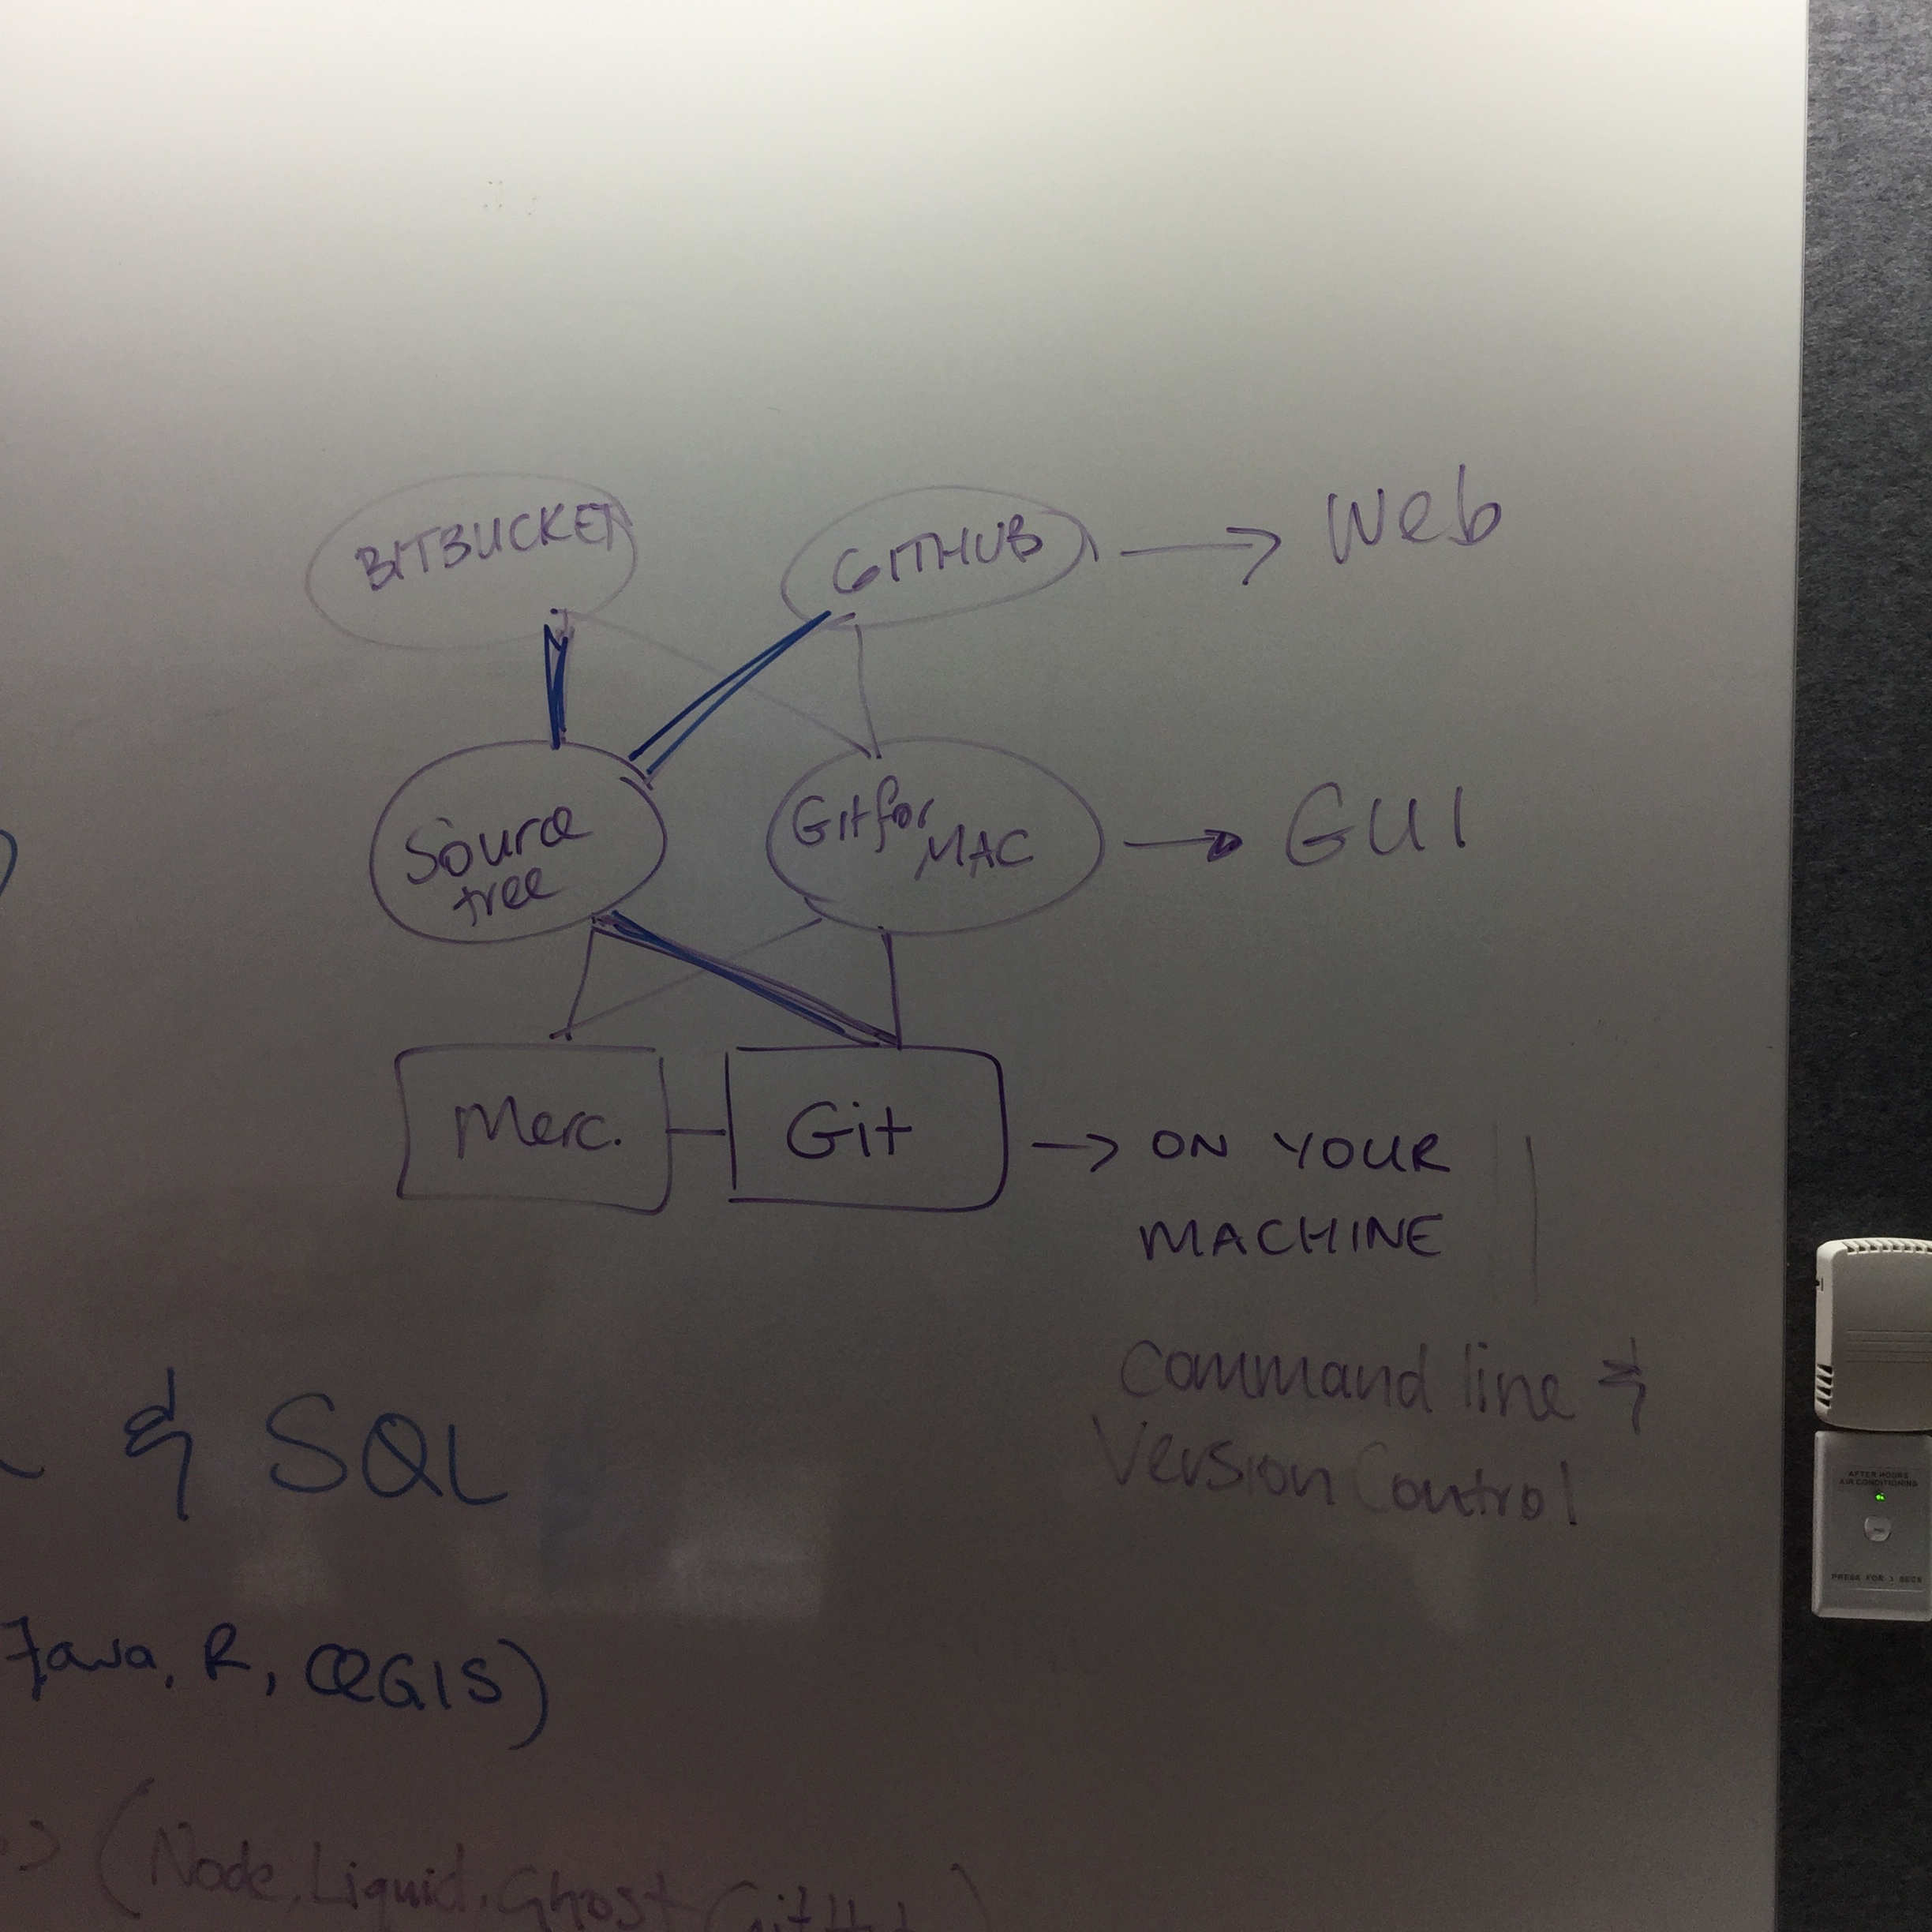 BITBUCKET
GITHUB
Web
Source
tree
Git for
MAC
GUI
Merc.
Git
ON YOUR
MACHINE
Command line &
Version Control
& SQL
Java, R, QGIS)
(Node, Liquid, Ghost
AFTER HOURS
AIR CONDITIONING
PRESS FOR 3 SECS